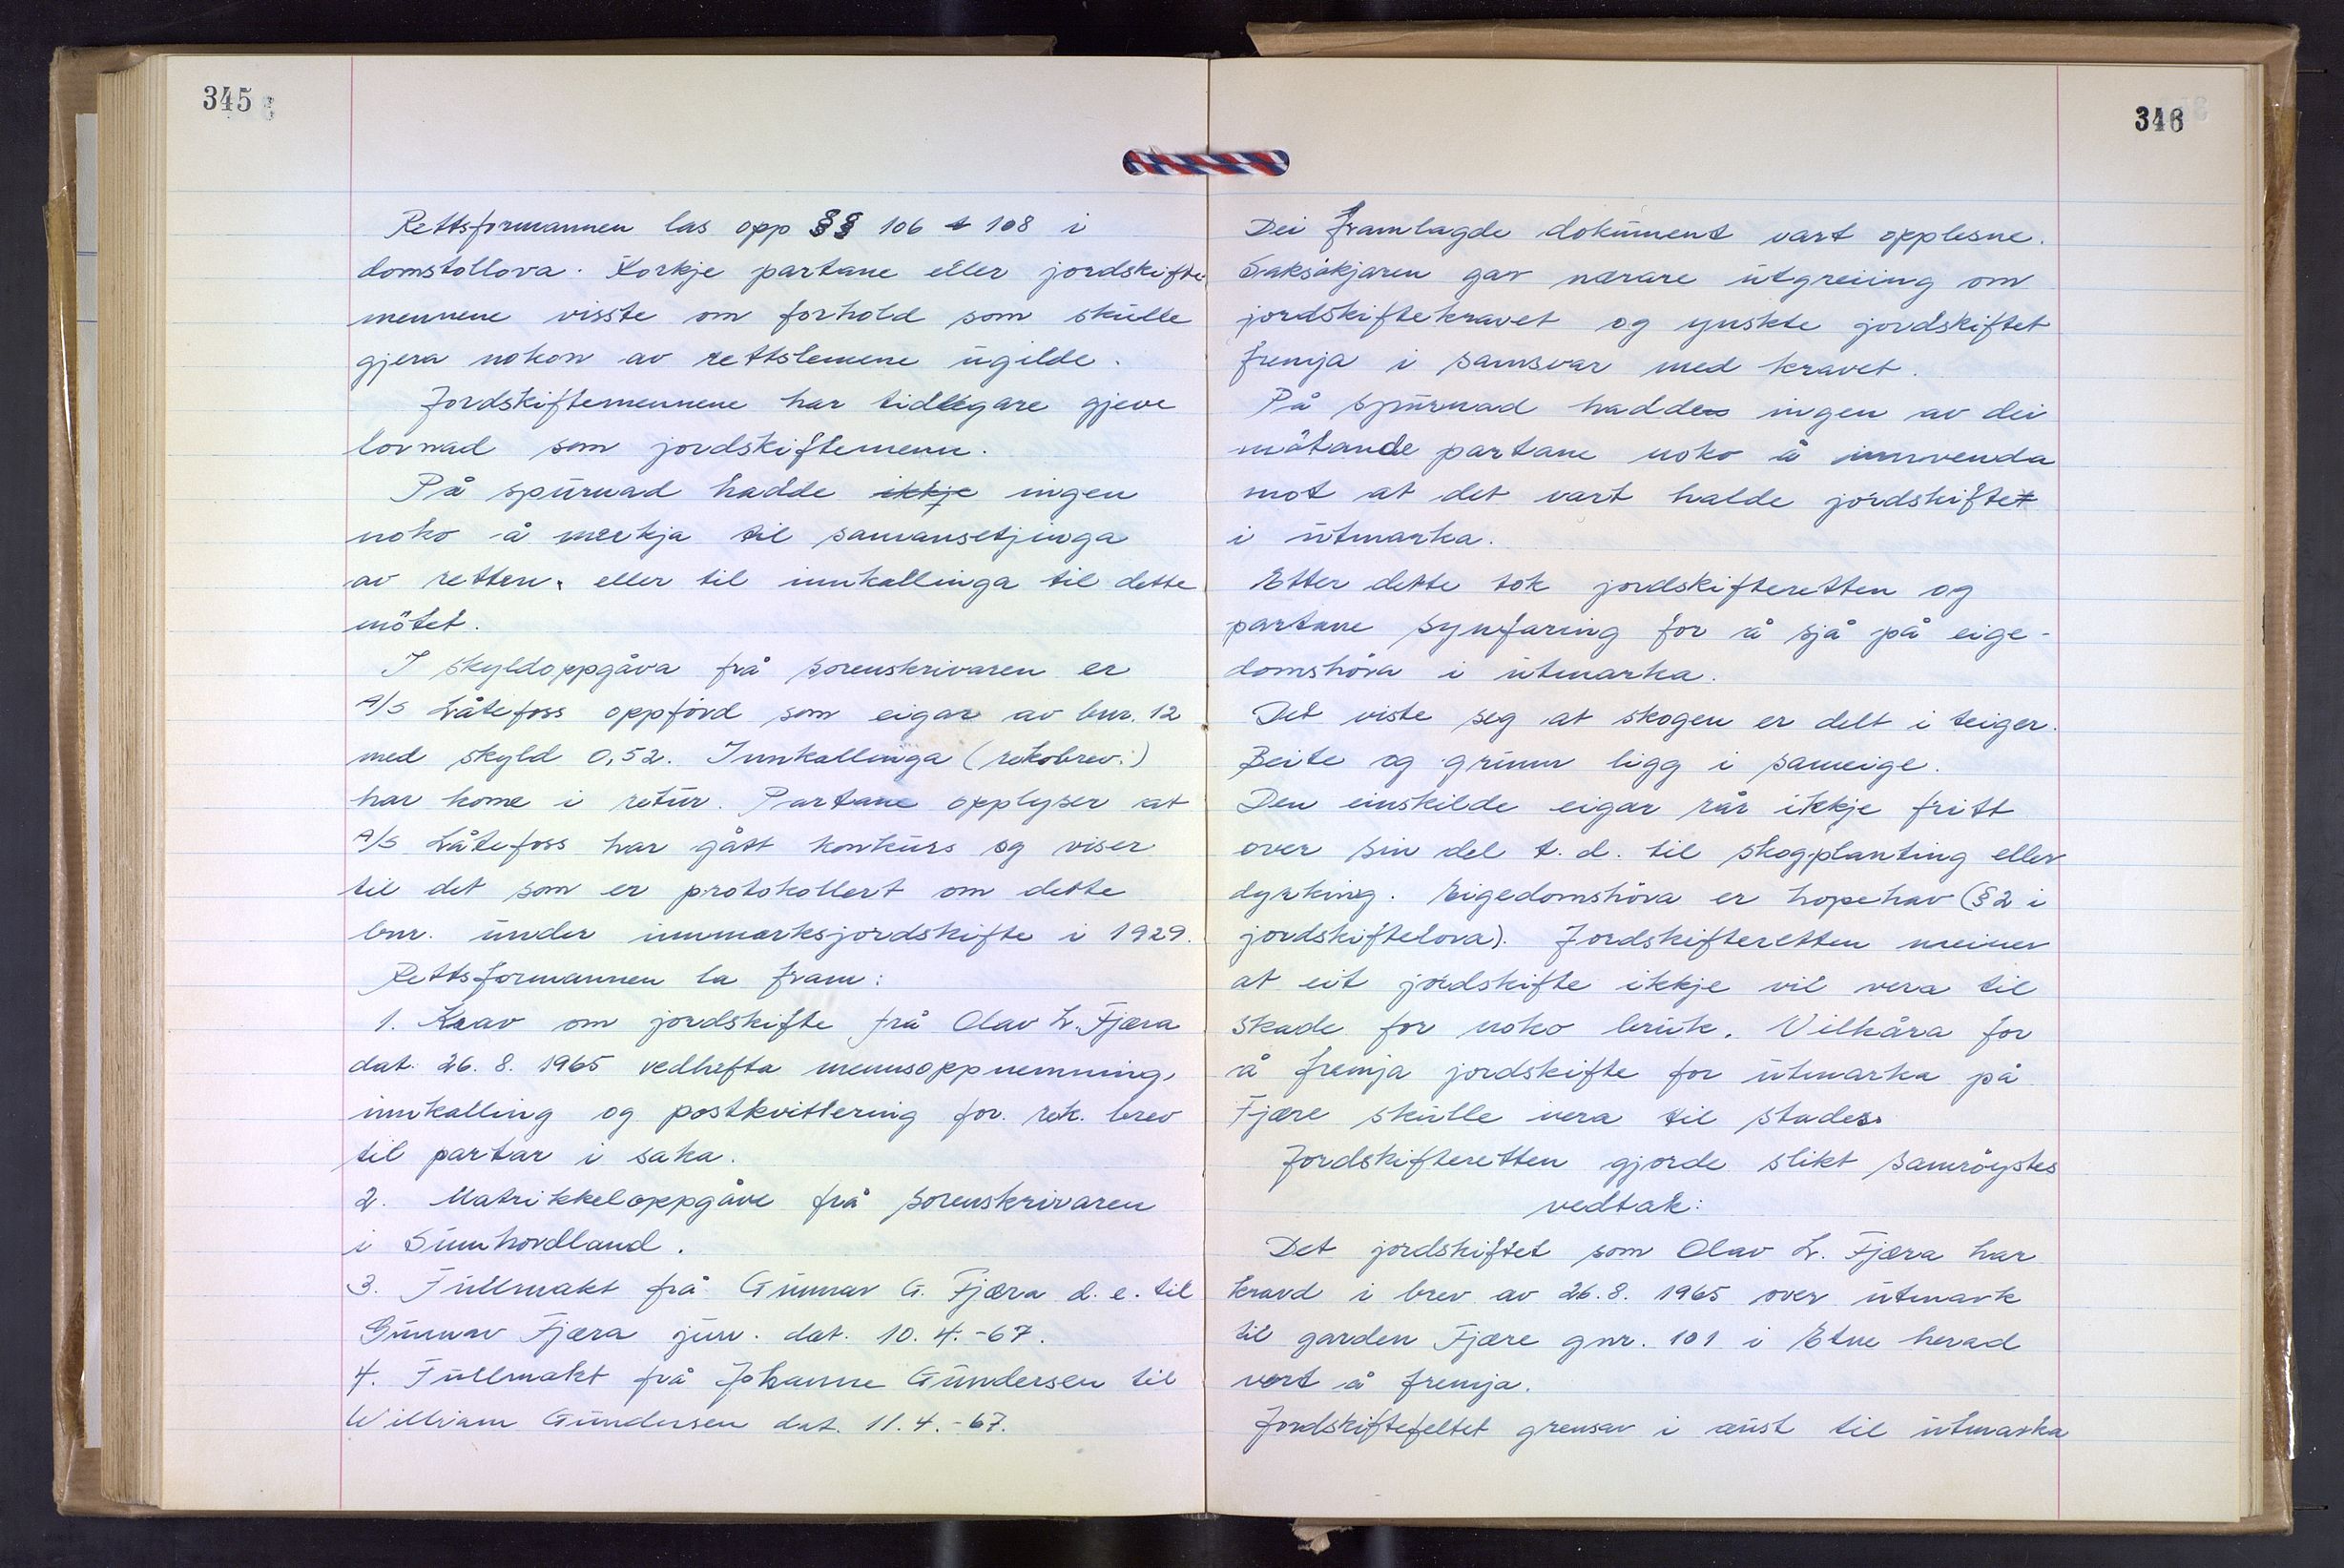 345
Rettsformannen las opp §§ 106 + 108 i
domstollova. Korkje partane eller jordskifte
mennene visste om forhold som skulle
gjera nokon av rettslemene ugilde.
Jordskiftemennene har tidlegare gjeve
lovnad som jordskiftemenn.
På spurnad hadde ikkje ingen
noko å merkja til samansetjinga
av retten, eller til innkallinga til dette
mötet.
I skyldoppgåva frå sorenskrivaren er
A/S Låtefoss oppförd som eigar av bnr. 12
med skyld 0,52. Innkallinga (rekobrev.)
har kome i retur. Partane opplyser at
A/S Låtefoss har gått konkurs og viser
til det som er protokollert om dette
bnr. under innmarksjordskifte i 1929.
Rettsformannen la fram:
1. Krav om jordskifte frå Olav L. Fjæra
dat. 26. 8. 1965 vedhefta mennsoppnemning,
innkalling og postkvittering for. rek. brev
til partar i saka.
2. Matrikkeloppgåve frå sorenskrivaren
i Sunnhordland.
3. Fullmakt frå Gunnar G. Fjæra d. e. til
Gunnar Fjæra jun. dat. 10. 4.-67.
4. Fullmakt frå Johanne Gundersen til
William Gundersen dat. 11. 4.-67.
346
Dei framlagde dokument vart opplesne.
Saksökjaren gav nærare utgreiing om
jordskiftekravet og ynskte jordskiftet
fremja i samsvar med kravet.
På spurnad hadde ingen av dei
mötande partane noko å innvenda
mot at det vart halde jordskifte
i utmarka.
Etter dette tok jordskifteretten og
partane synfaring for å sjå på eige-
domshöva i utmarka.
Det viste seg at skogen er delt i teiger.
Beite og grunn ligg i sameige.
Den einskilde eigar rår ikkje fritt
over sin del t. d. til skogplanting eller
dyrking. Eigedomshöva er hopehav (§ 2 i
jordskiftelova). Jordskifteretten meiner
at eit jordskifte ikkje vil vera til
skade for noko bruk. Vilkåra for
å fremja jordskifte for utmarka på
Fjære skulle vera til stades.
Jordskifteretten gjorde slikt samröystes
vedtak:
Det jordskiftet som Olav L. Fjæra har
kravd i brev av 26. 8. 1965 over utmark
til garden Fjære gnr. 101 i Etne herad
vert å fremja.
Jordskiftefeltet grensar i aust til utmarka